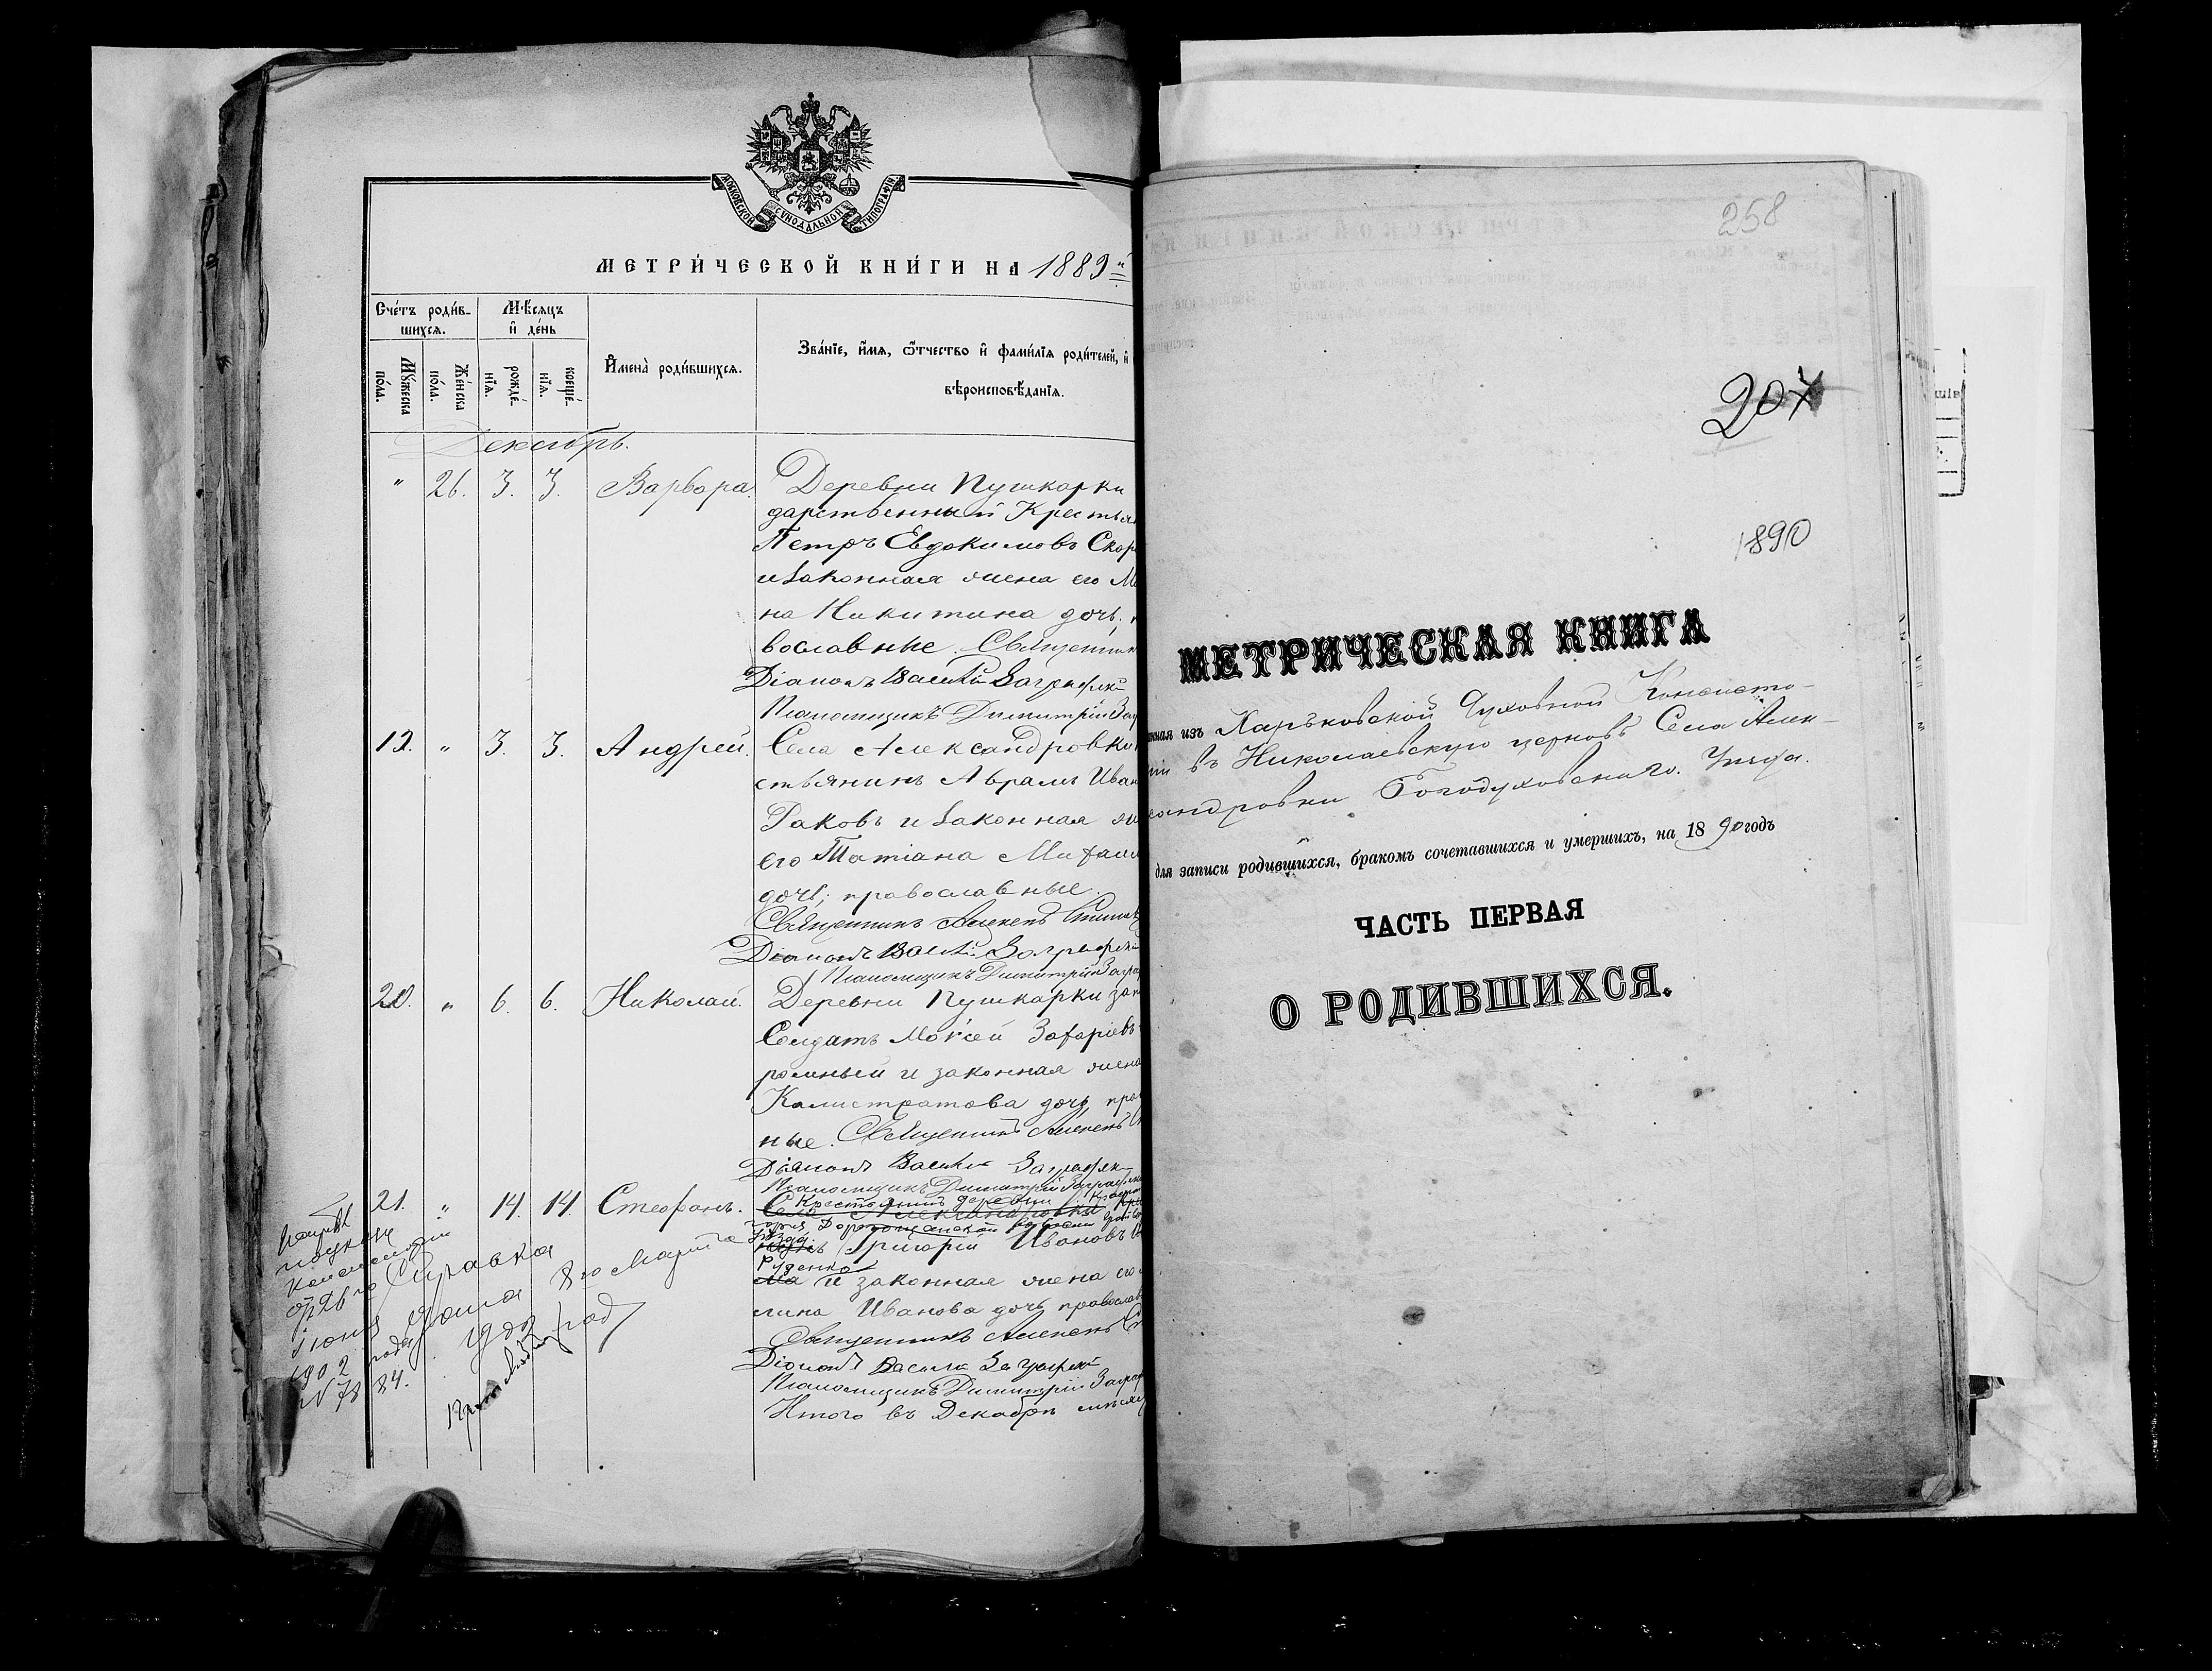 МОСКОВСКОЙ СѴНОДАЛЬНОЙ ТИПОГРАФІИ
МЕТРИ́ЧЕСКОЙ КНИ́ГИ НА 1889 й
Сче́тъ роди́в-
шихся.
Мѣ́сяцъ
и҆ де́нь
Мꙋ́жеска
по́ла.
Же́нска
по́ла.
рожде́-
нія.
креще́-
нія.
И҆мена̀ роди́вшихся.
Зва́нїе, и҆́мя, ѻ҆́тчество и҆ фами́лїя роди́телей, и҆
вѣроисповѣ́данїя.
Декабрь.
" 26. 3. 3. Варвора. Деревни Пушкарки
дарственный Крестья
Петръ Евдокимовъ Скор
и законная жена его
на Никитина дочь,
вославные. Священник
Діаконъ Василій Заграфскій
Псаломщикъ Димитрій Заг
19. " 3. 3. Андрей. Села Александровки
стьянинъ Аврамъ Иван
Раковъ и законная же
его Татіана Михаил
дочь; православные.
Священникъ Алексѣй
Діаконъ Василій Заграфскій
Псаломщикъ Димитрій Заграф
20. " 6. 6. Николай. Деревни Пушкарки зап
Солдатъ Моѵсей Захаріевъ
роменный и законная жена
Калистратова дочь, прав
ные. Священникъ Алексѣй
Діаконъ Василій Заграфск
Псаломщикъ Димитрій Заграфск
21. " 14. 14. Стефанъ. Крестьянинъ деревни
Села Александровки
уѣзда Григорій Ивановъ
Руденко
и законная жена его
лина Иванова дочь православ
Священникъ Алексѣй
Діаконъ Василій Заграфскій
Псаломщикъ Димитрій Заграф
Итого въ Декабрѣ мѣсяц
Справка
отъ 26 го
іюня
1902 года
№ 7884.
дана 8 го Марта
258
207
1890
МЕТРИЧЕСКАЯ КНИГА
нная изъ Харьковской Духовной Консисто-
ріи въ Николаевскую церковь Села Алек-
сандровки Богодуховскаго Уѣзда.
для записи родившихся, бракомъ сочетавшихся и умершихъ, на 1890 годъ
ЧАСТЬ ПЕРВАЯ
О РОДИВШИХСЯ.